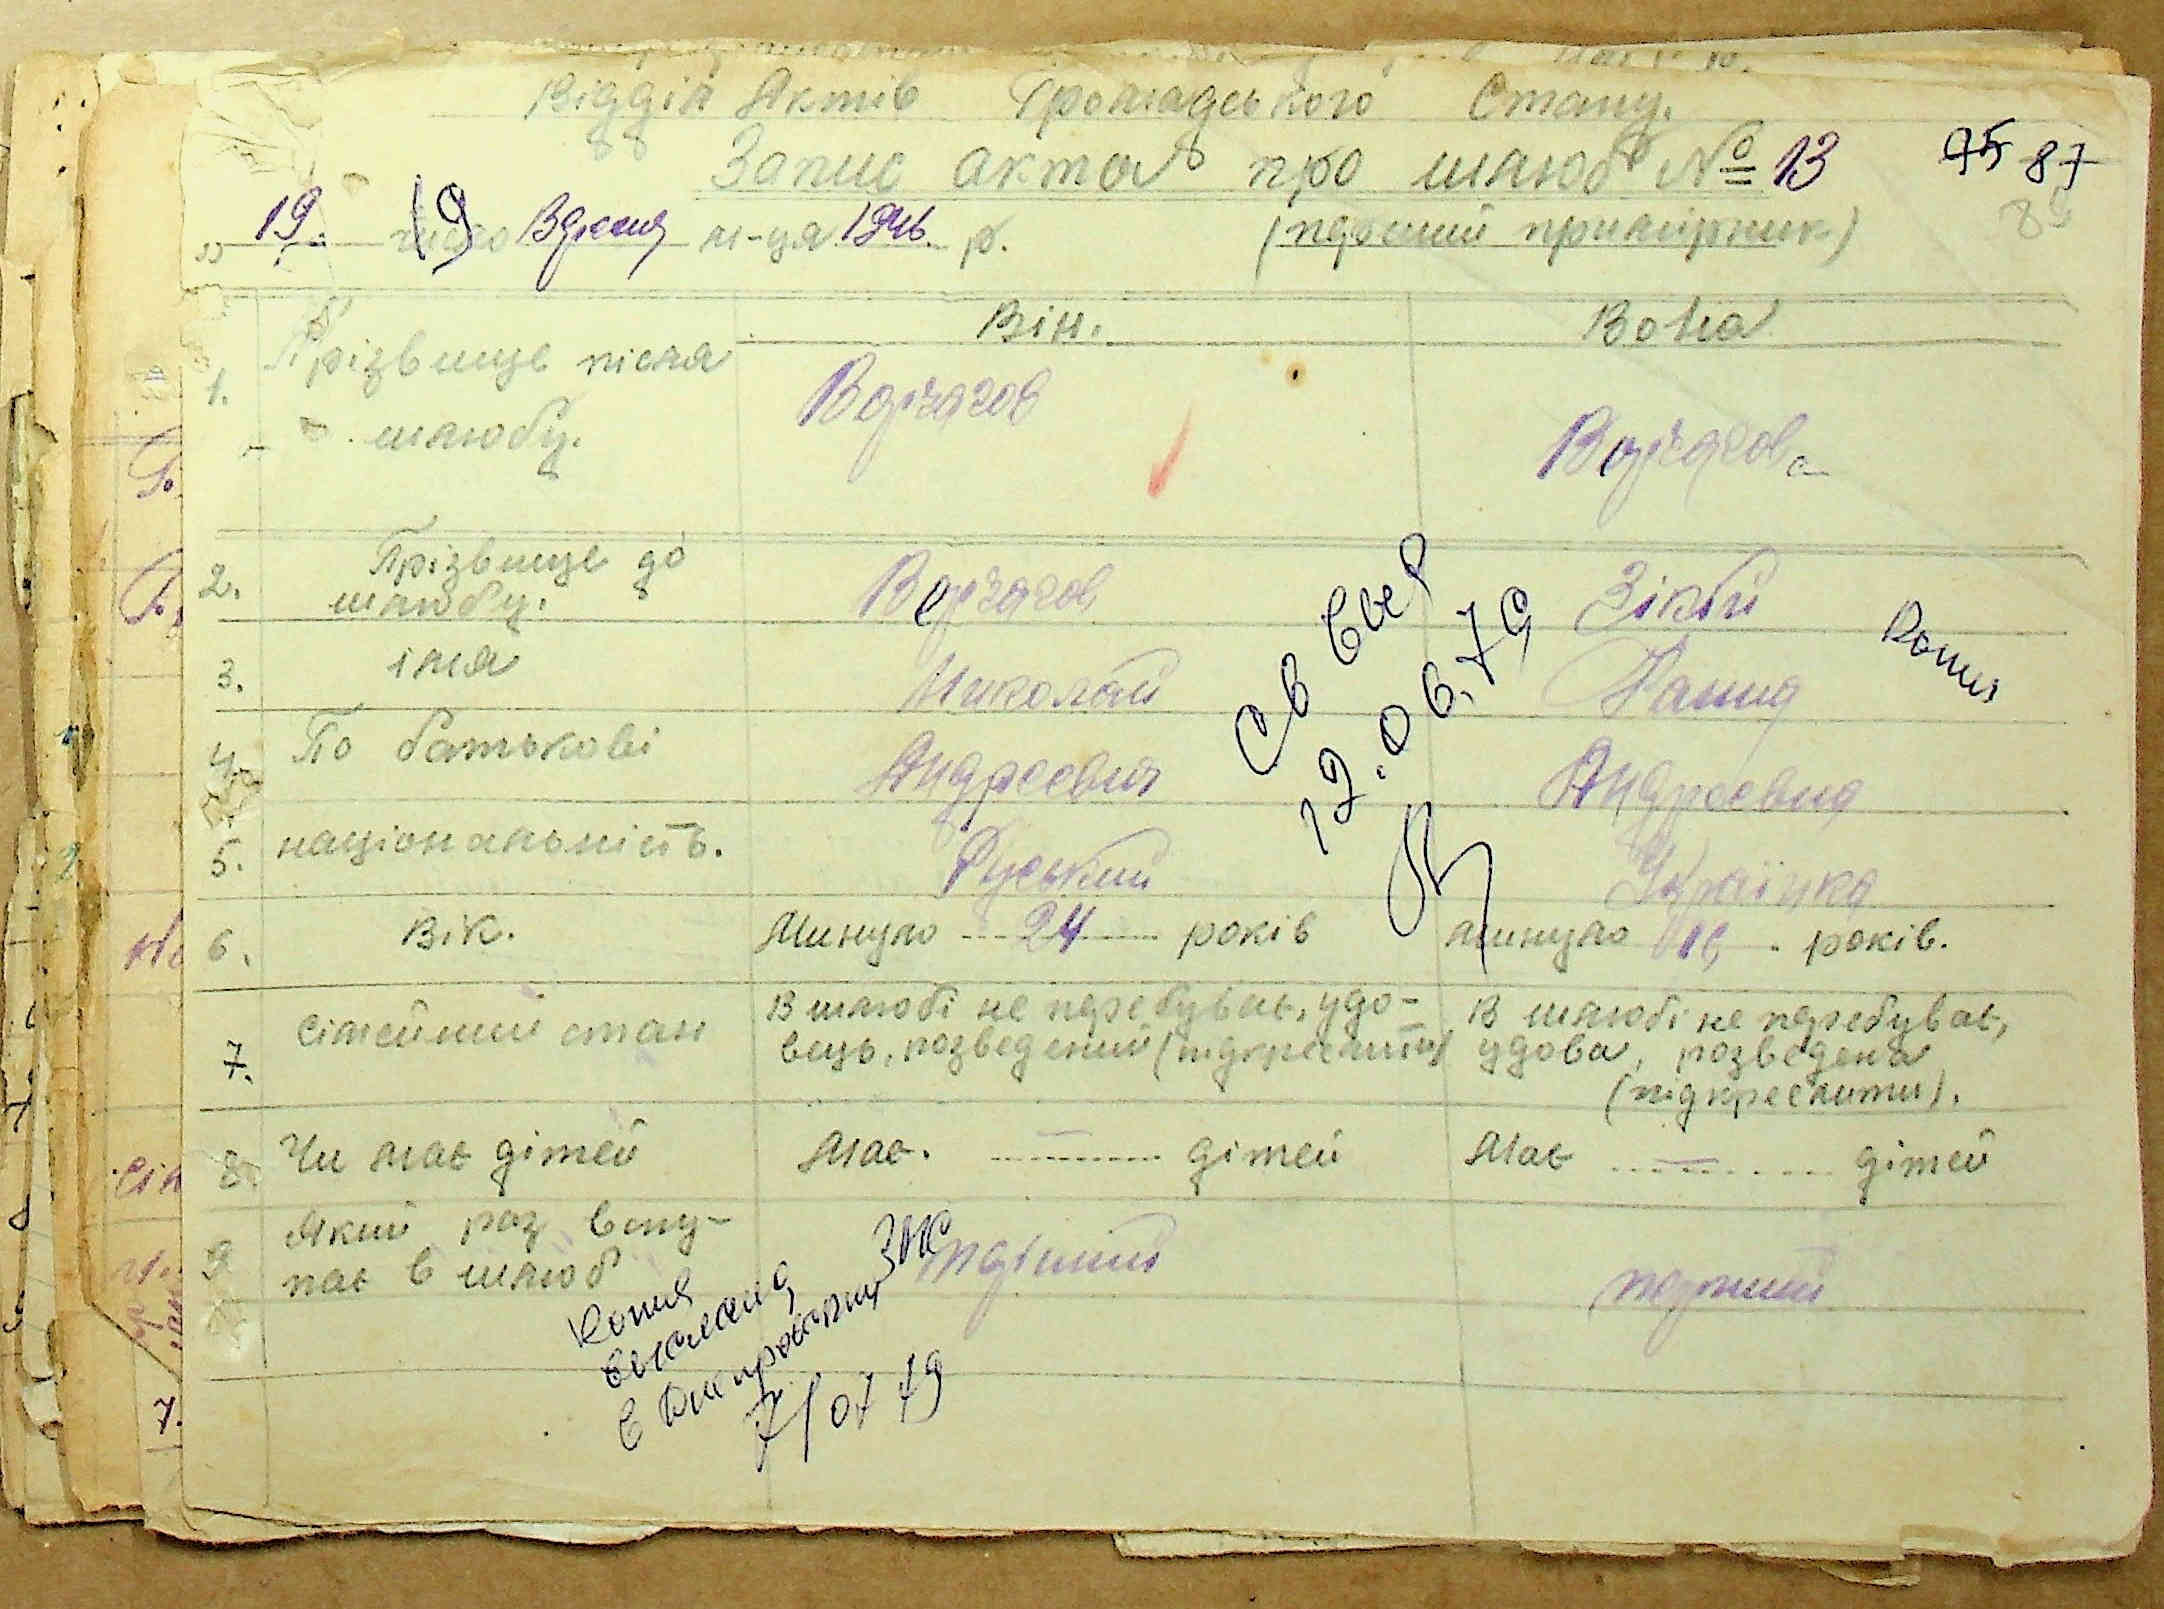 Відділ Актів Громадського Стану.
Запис акта про шлюб № 13
75 87
19 число 19 Вересня м-ця 1946 р. (перший примірник)
Він. Вона
1. Прізвище після шлюбу.
2. Прізвище до шлюбу. Зікій
3. імя Николай Дания
4. По батькові Андреевич Андреевна
5. національність. Руський Українка
6. Вік. Минуло 24 років минуло років.
7. Сімейний стан
В шлюбі не перебував, удо-
вець, розведений (підкреслити)
В шлюбі не перебував,
удова, розведена
(підкреслити).
8. Чи має дітей Має. — дітей Має — дітей
9 Який раз всту-
пає в шлюб перший перший
Св выд
12.06.79
Копия
Копия
выслана
в
7/07 79